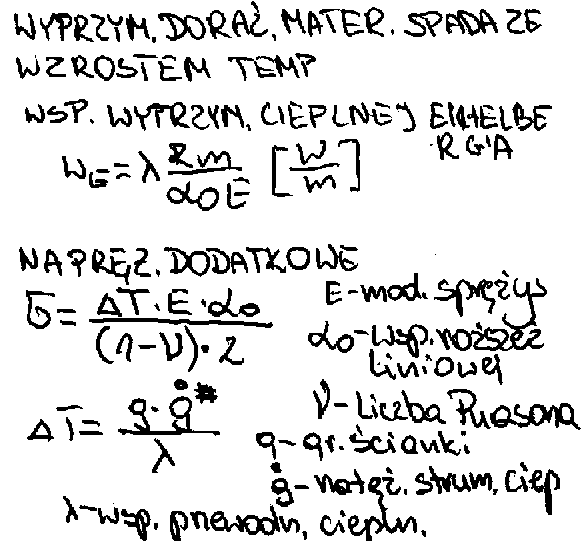 WYPRZYM. DORAŹ. MATER. SPADA ZE
WZROSTEM TEMP
WSP. WYTRZYM. CIEPLNEJ EICHELBE
RGIA
W_G = λ Rm / (α₀E) [W/m]
NAPRĘŻ. DODATKOWE
σ = ΔT·E·α₀ / ((1-ν)·2)
E-mod. spręžys
α₀-wsp. rozszeż
liniowej
ν-Liczba Puasona
ΔT = g·q̇ / λ
g-gr. ścianki
q̇-natęż. strum. ciep
λ-wsp. przewodn. ciepln.